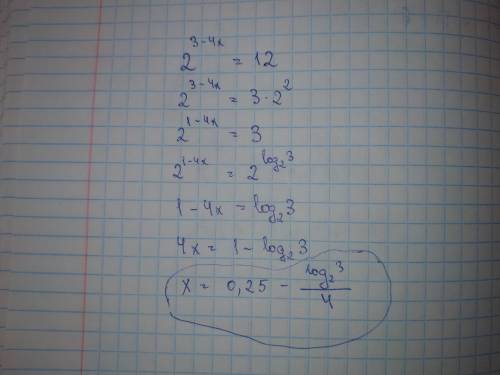 2^{3-4x} = 12
2^{3-4x} = 3 · 2^2
2^{1-4x} = 3
2^{1-4x} = 2^{log_2 3}
1 - 4x = log_2 3
4x = 1 - log_2 3
x = 0,25 - \frac{log_2 3}{4}